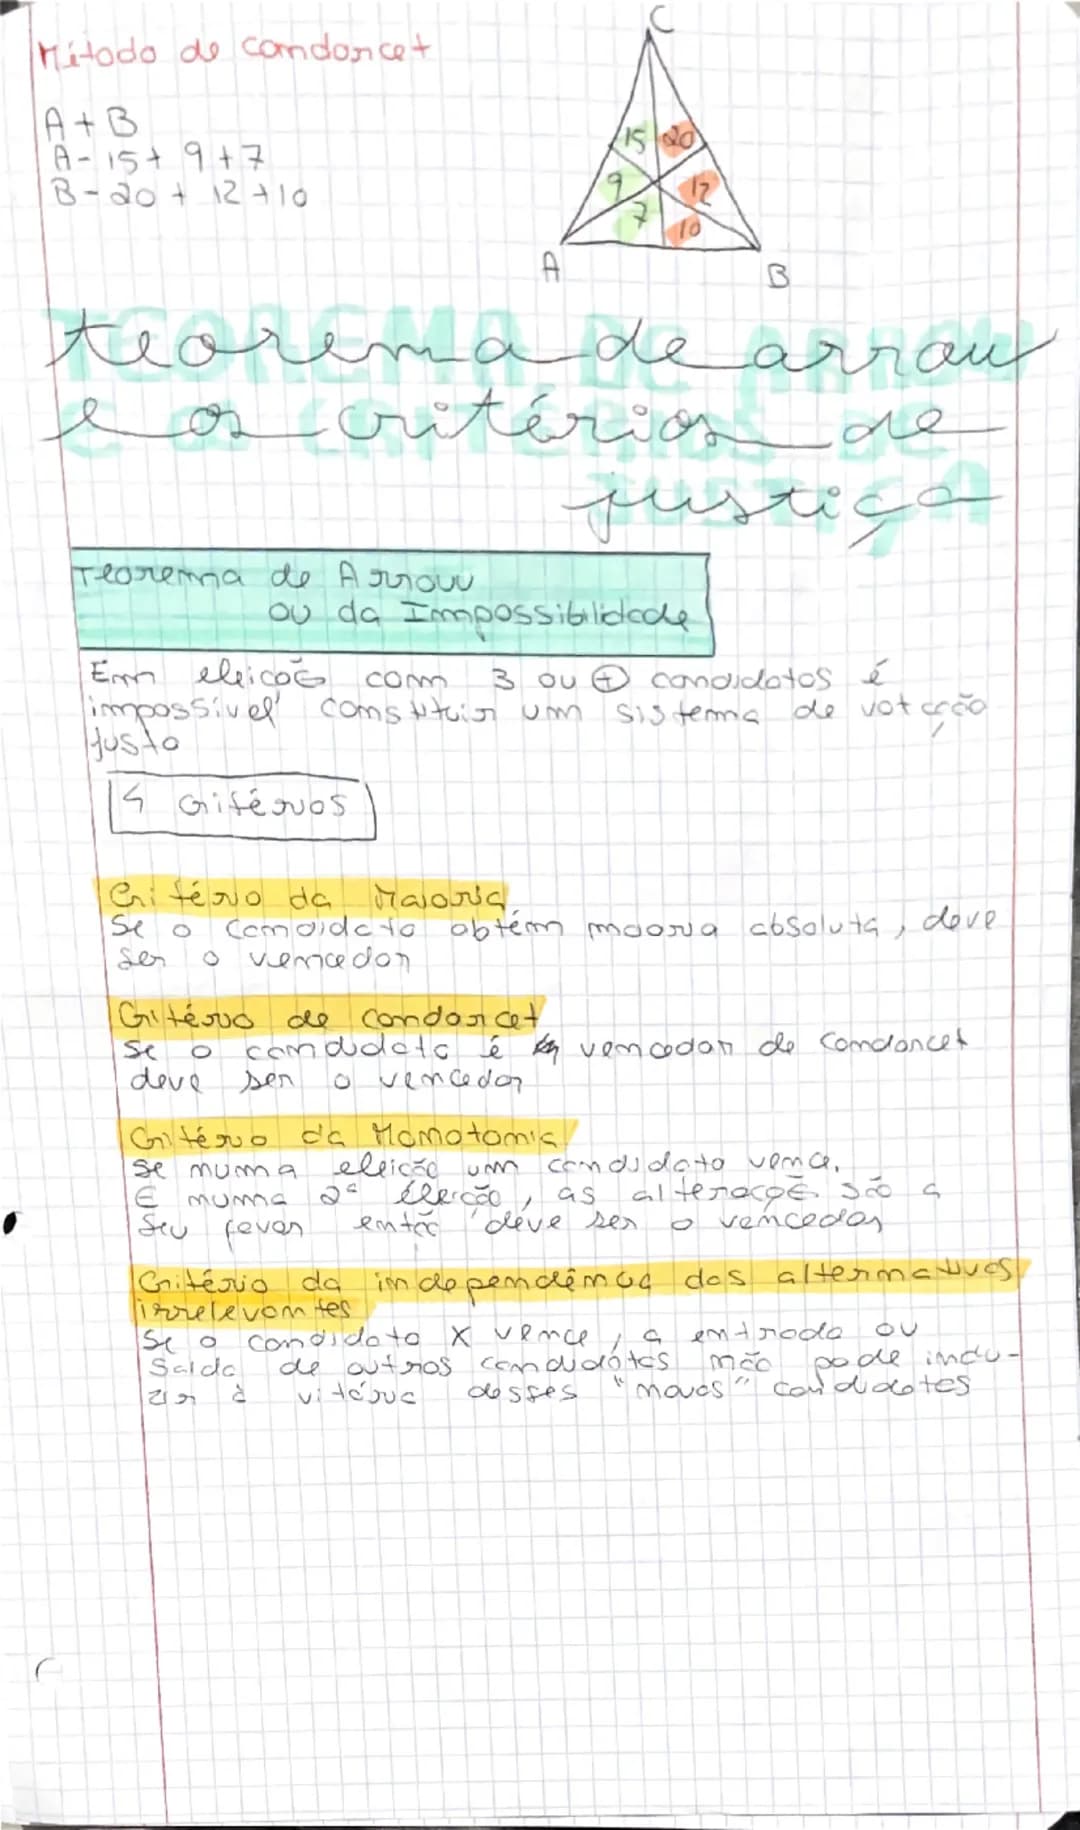 Método de Condorcet
A + B
A - 15 + 9 + 7
B - 20 + 12 + 10
C
15 20
9 12
7 10
A B
teorema de arrow
e os critérios de
justiça
Teorema de Arrow
ou da Impossibilidade
Em eleições com 3 ou + candidatos é
impossível constituir um sistema de votação
justo
4 Critérios
Critério da Maioria
Se o candidato obtém maioria absoluta, deve
ser o vencedor
Critério de Condorcet
Se o candidato é vencedor de Condorcet
deve ser o vencedor
Critério da Monotomia
Se numa eleição um candidato vence.
E numa 2ª eleição, as alterações são a
seu favor então deve ser o vencedor
Critério da independência das alternativas
irrelevantes
Se o candidato X vence, a entrada ou
saída de outros candidatos não pode indu-
zir à vitória desses "novos" candidatos